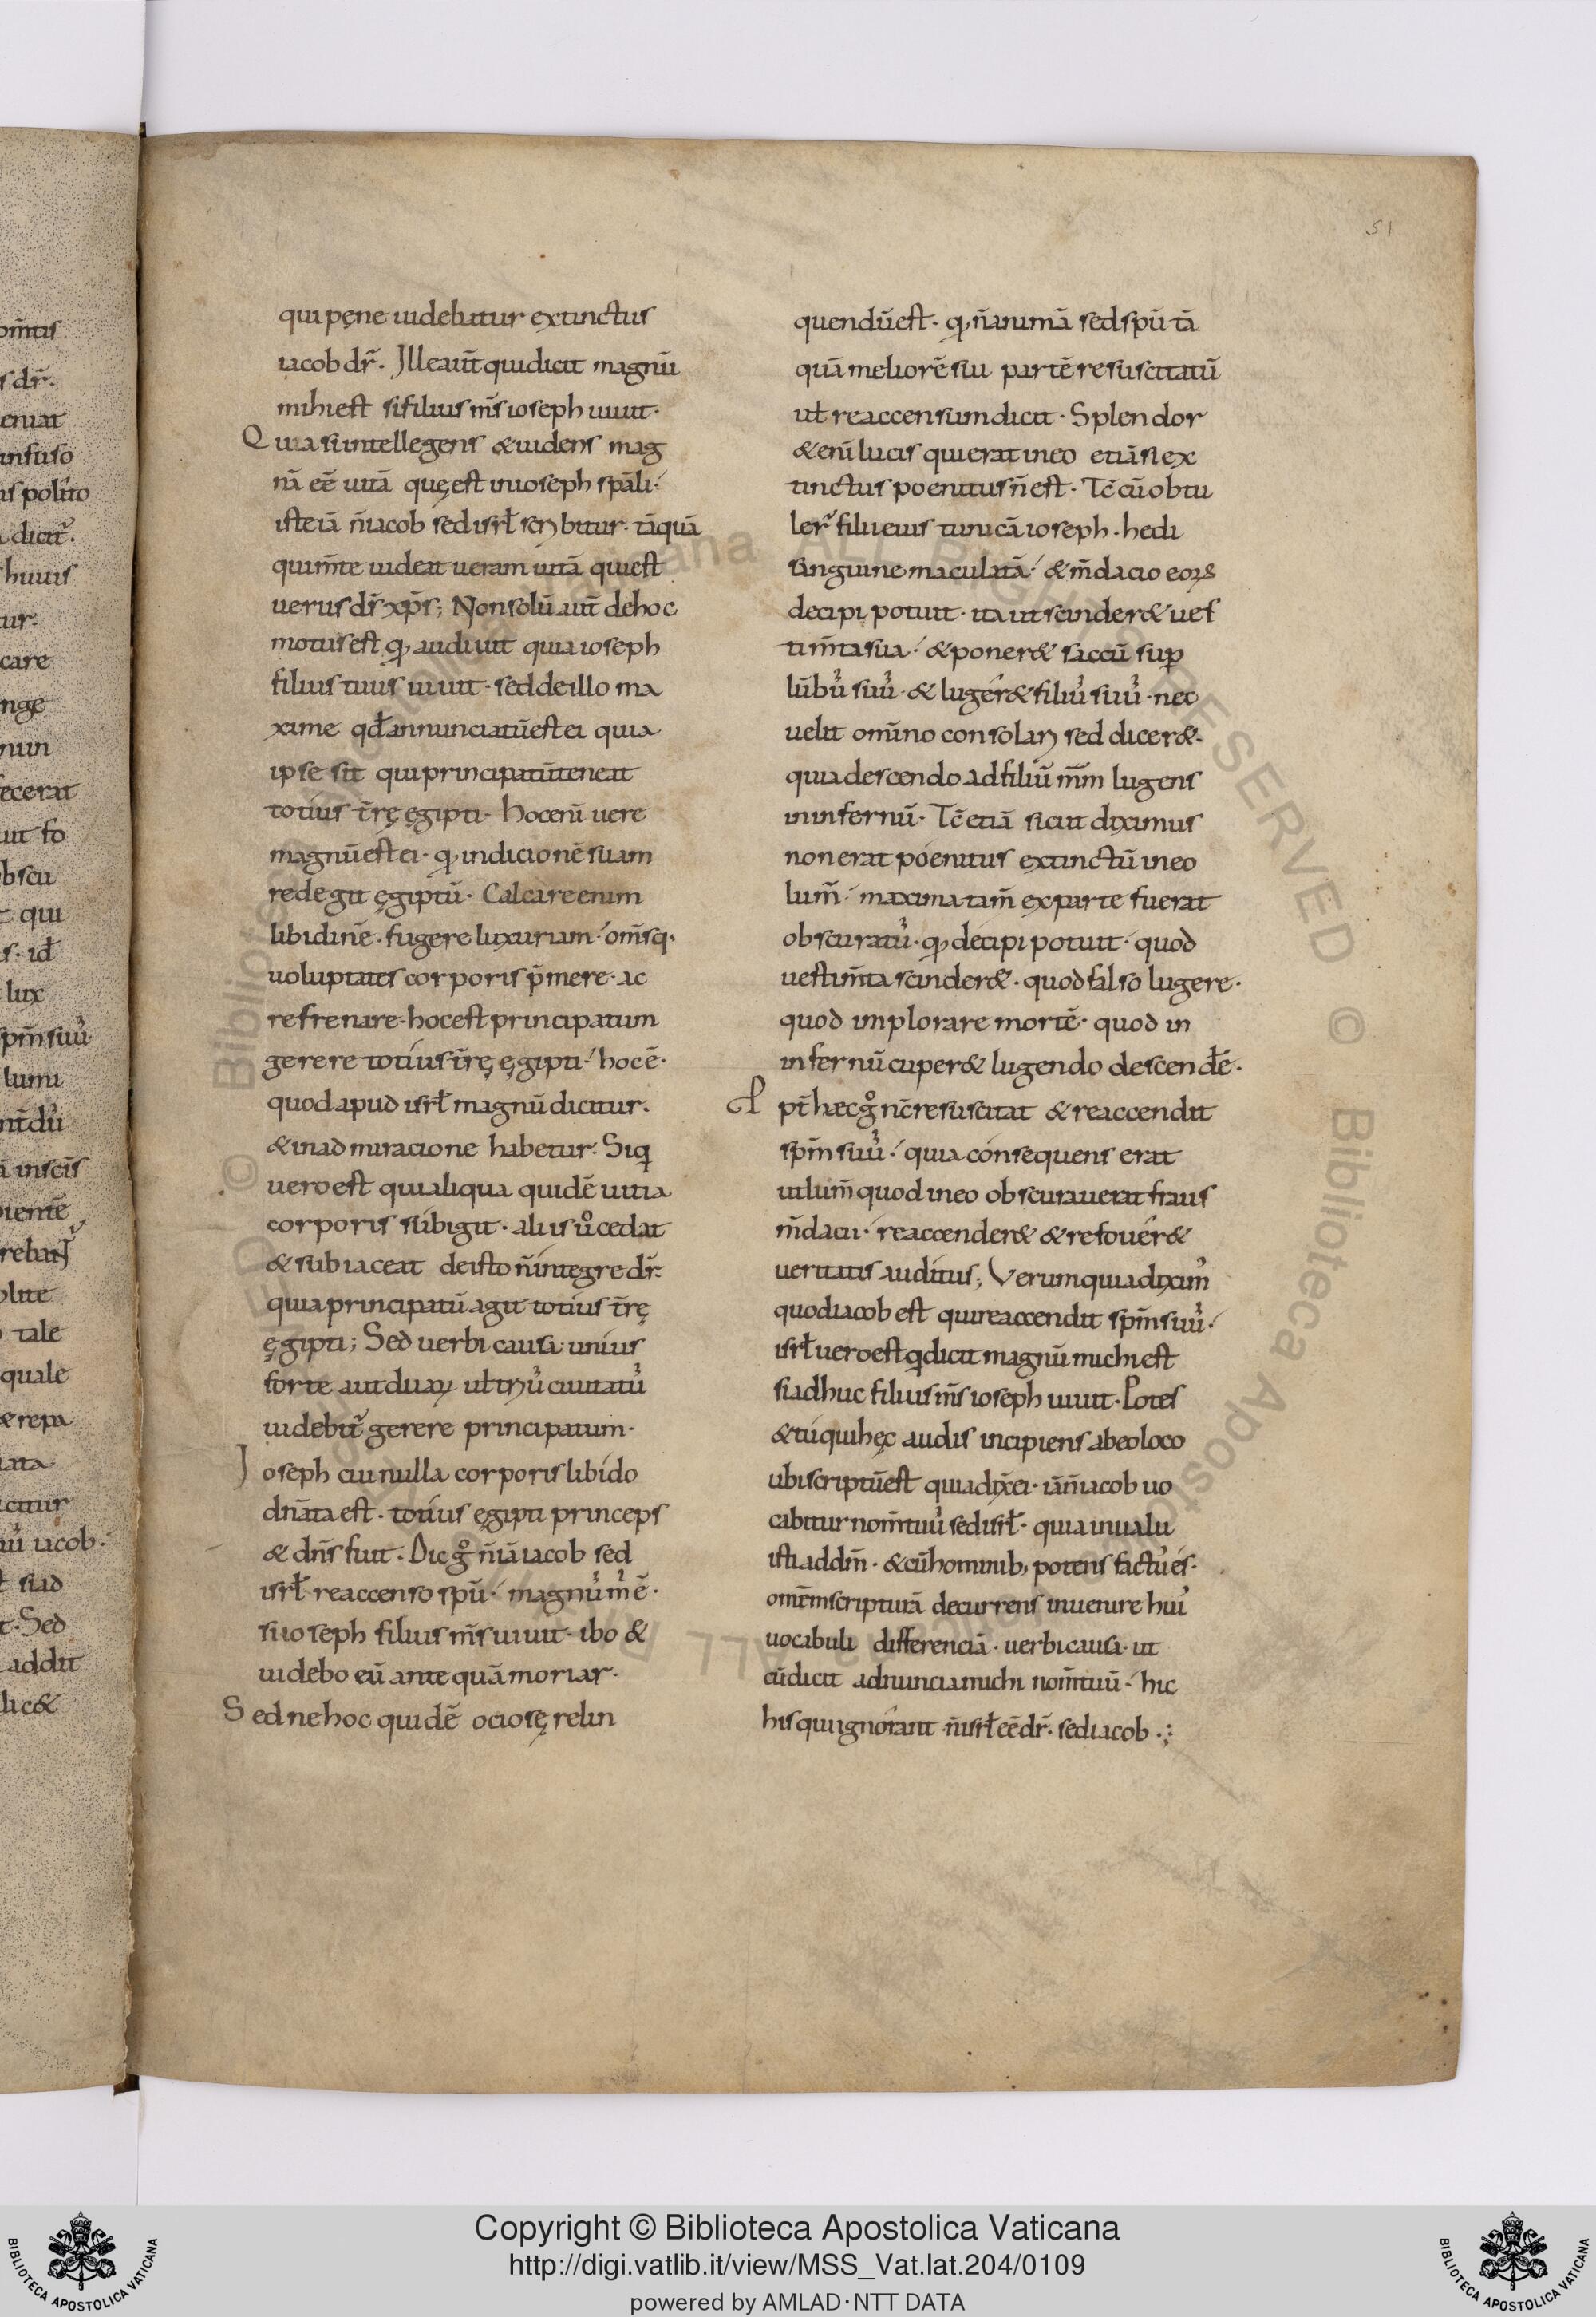 51
qui pęne uidebatur extinctus
iacob dr̄. Ille aut̄ qui dicit magnū
mihi est si filius m̄s ioseph uiuit.
Quasi intellegens & uidens mag
nā eē uitā quę est in ioseph spāli.
iste iā n̄ iacob sed isrł scribitur. tāquā
qui m̄te uideat ueram uitā qui est
uerus dr̄ xp̄s; Non solū aut̄ de hoc
motus est q, audiuit quia ioseph
filius tuus uiuit. sed de illo ma
xime qđ annunciatū est ei quia
ipse sit qui principatū teneat
totius t̄rę ęgipti. Hoc enī uere
magnū est ei. q, in dicionē suam
redegit ęgiptū. Calcare enim
libidinē. fugere luxuriam. om̄sq.
uoluptates corporis p̄mere. ac
refrenare. hoc est principatum
gerere totius t̄rę ęgipti. hoc ē.
quod apud isrł magnū dicitur.
& in admiracione habetur. Siq
uero est qui aliqua quidē uitia
corporis subigit. aliis ů cedat
& subiaceat de isto n̄ integre dr̄.
quia principatū agit totius t̄rę
ęgipti; Sed uerbi causa unius
forte aut duaꝝ uł triū ciuitatū
uidebit̄ gerere principatum.
Ioseph cui nulla corporis libido
dn̄ata est. totius ęgipti princeps
& dn̄s fuit. Dic g̊ n̄ iā iacob sed
isrł reaccenso spū. magnū m̄ ē.
si ioseph filius m̄s uiuit. ibo &
uidebo eū ante quā moriar.
Sed ne hoc quidē ociosę relin
quendū est. q, n̄ animā sed spū tā
quā meliorē sui partē resuscitatū
uł reaccensum dicit. Splendor
& enī lucis qui erat in eo etiā si ex
tinctus poenitus n̄ est. Tc̄ cū obtu
ler̄ filii eius tunicā ioseph. hedi
sanguine maculatā. & m̄dacio eoꝝ
decipi potuit. ita ut scinder& ues
tim̄ta sua. & poner& saccū sup
lūbū suū. & luger& filiū suū. nec
uelit omīno consolari sed dicer&.
quia descendo ad filiū m̄m lugens
in infernū. Tc̄ etiā sicut diximus
non erat poenitus extinctū in eo
lum̄. maxima tam̄ ex parte fuerat
obscuratū. q, decipi potuit. quod
uestim̄ta scinder&. quod falso lugere.
quod inplorare mortē. quod in
infernū cuper& lugendo descendē.
Ppt̄ haec g̊ nc̄ resuscitat & reaccendit
spm̄ suū. quia consequens erat
ut lum̄ quod in eo obscurauerat fraus
m̄dacii. reaccender& & refouer&
ueritatis auditus; Verum quia diximꝰ
quod iacob est qui reaccendit spm̄ suū.
isrł uero est q dicit magnū michi est
si adhuc filius m̄s ioseph uiuit. Potes
& tu qui hęc audis incipiens ab eo loco
ubi scriptū est quia dix̄ ei. iā n̄ iacob uo
cabitur nom̄ tuū sed isrł. quia inualu
isti ad dm̄. & cū hominib, potens factus es.
omēm scripturā decurrens inuenire huiꝰ
uocabuli differenciā. uerbi causa. ut
cū dicit adnuncia michi nom̄ tuū. hic
his qui ignorant n̄ isrł eē dr̄. sed iacob.;
om̄tis
s dr̄.
eniat
infuso
is polito
dicit̄.
huius
ur.
care
nge
nun
ecerat
fo
bscu
qui
s. id
lux
spm̄ suū
lumi
inscīs
ientē
rebaɴt
tale
quale
& repa
iata
citur
iacob.
siad
Sed
addit
lic&
Copyright © Biblioteca Apostolica Vaticana
http://digi.vatlib.it/view/MSS_Vat.lat.204/0109
powered by AMLAD·NTT DATA
BIBLIOTECA APOSTOLICA VATICANA
BIBLIOTECA APOSTOLICA VATICANA